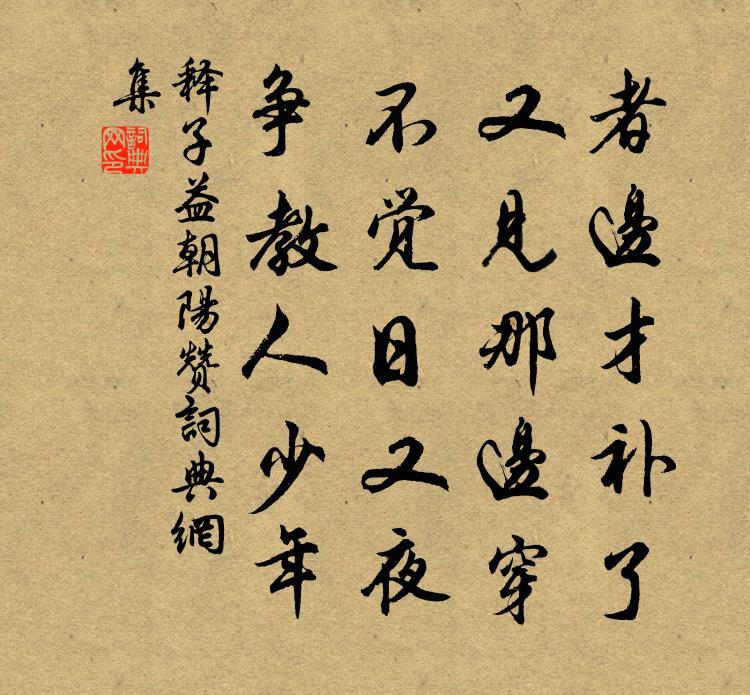 者邊才补了
又見那邊穿
不覚日又夜
争教人少年
释子益朝陽赞詞典網
集
詞典网印